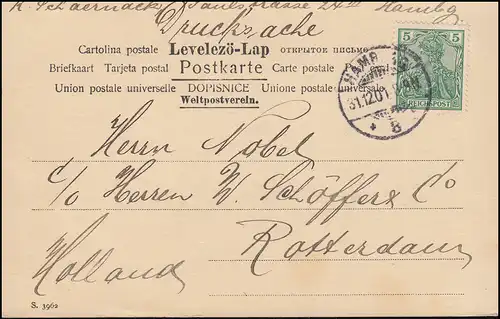 Paulstrasse 24 III Hambg
Drucksache
Cartolina postale Levelező-Lap ОТКРЫТОЕ ПИСЬМО
Briefkaart Tarjeta postal Postkarte Carte postale
Union postale universelle DOPISNICE Unione postale universale
Weltpostverein.
5 5
REICHSPOST
HAMBURG
31.12.01
* 8
Herrn Nobel
c/o Herren W. Schöffers Co
Rotterdam
Holland
S. 3962